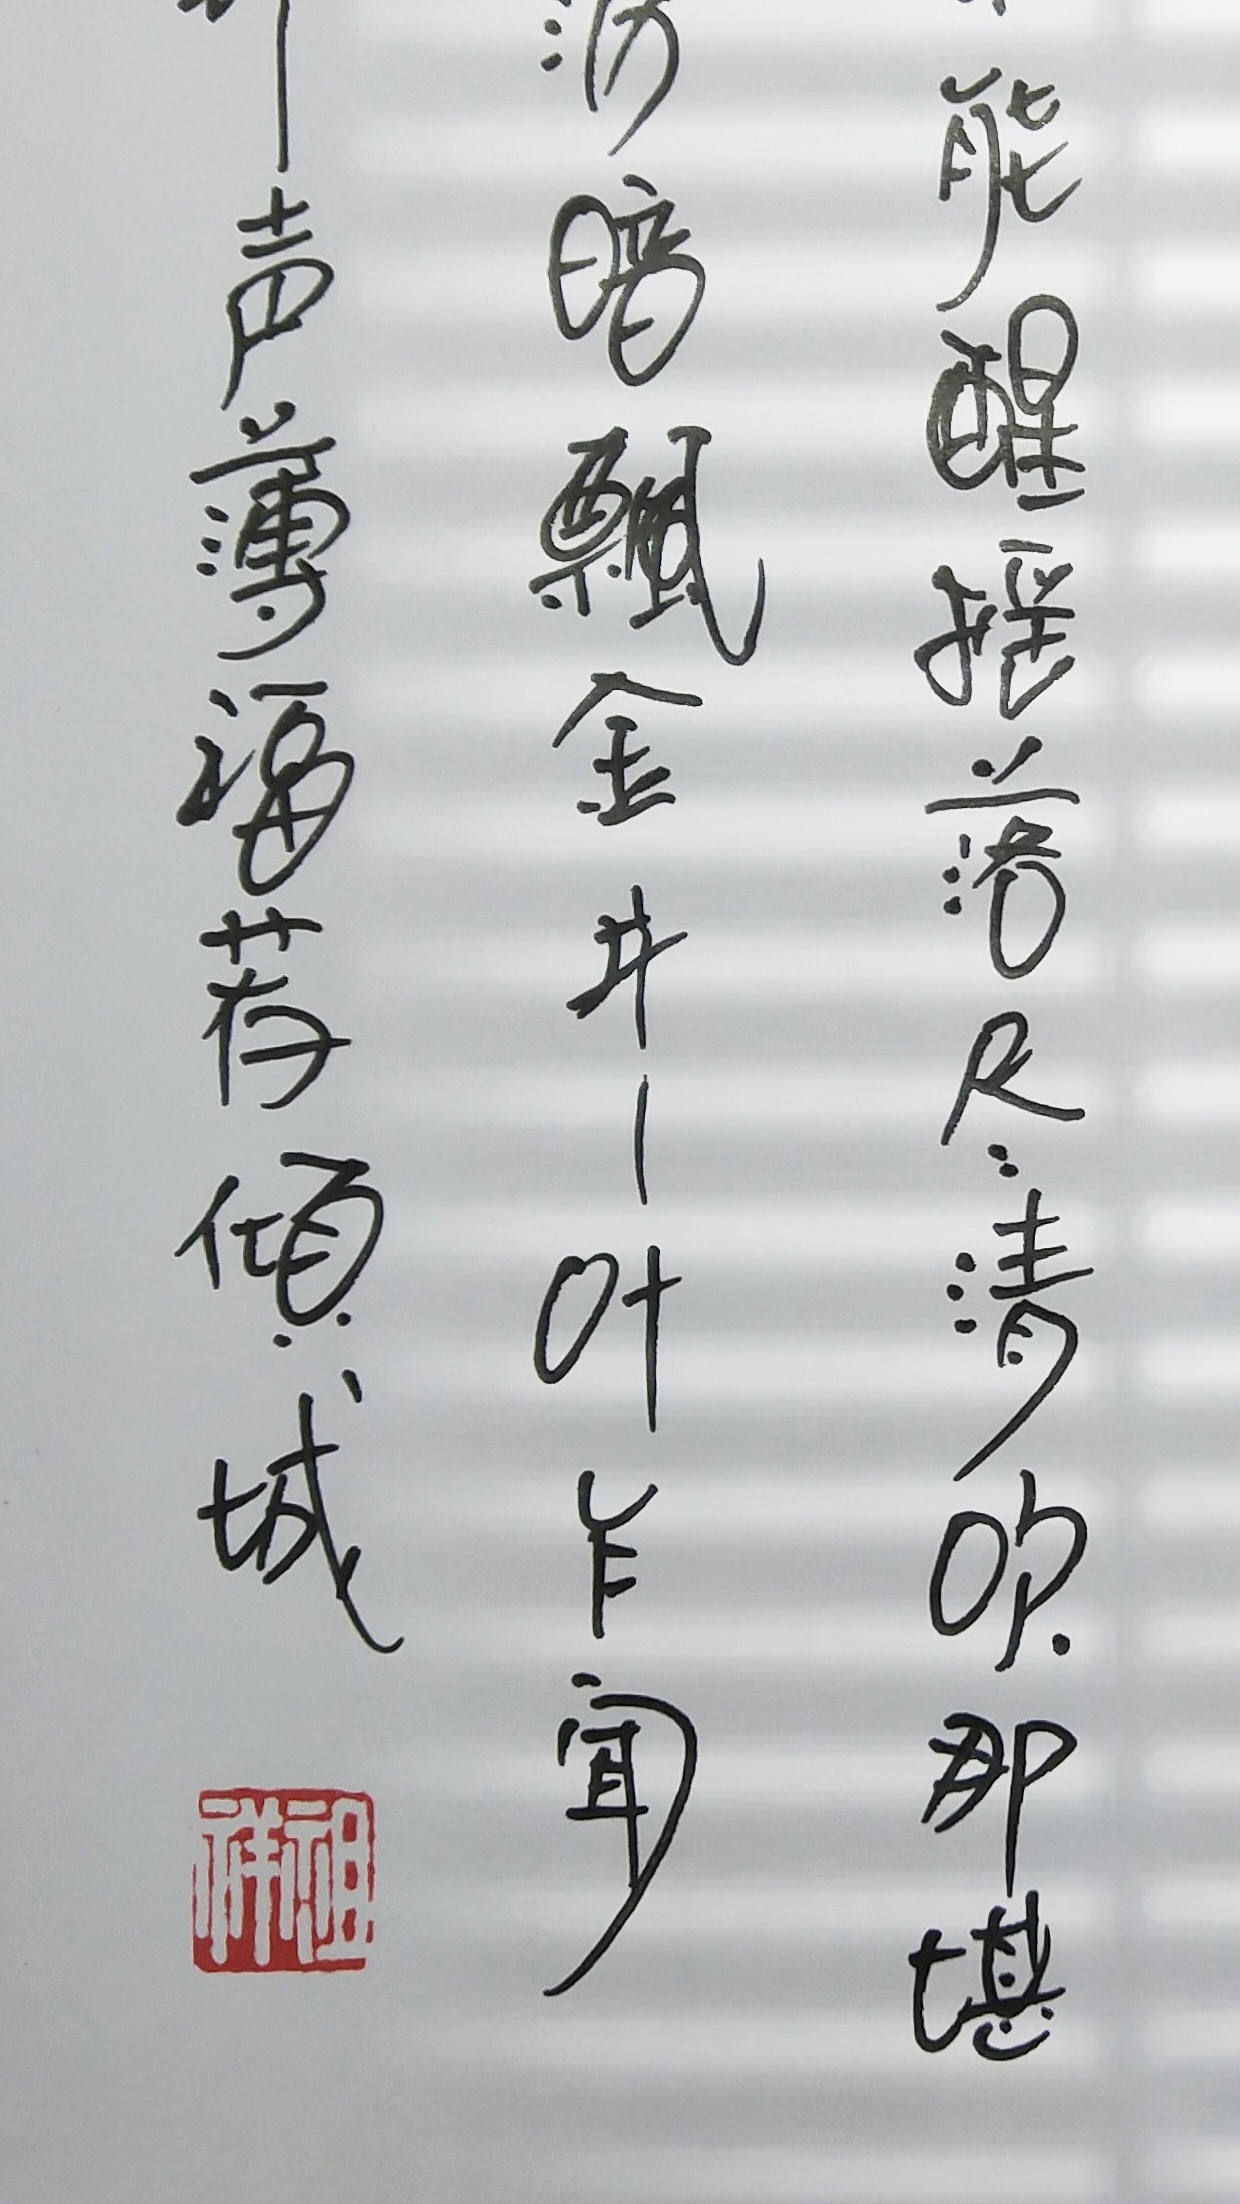 能醒摇落尽清吹那堪
暗飘金井叶乍闻
声薄福荐倾城
祖祥